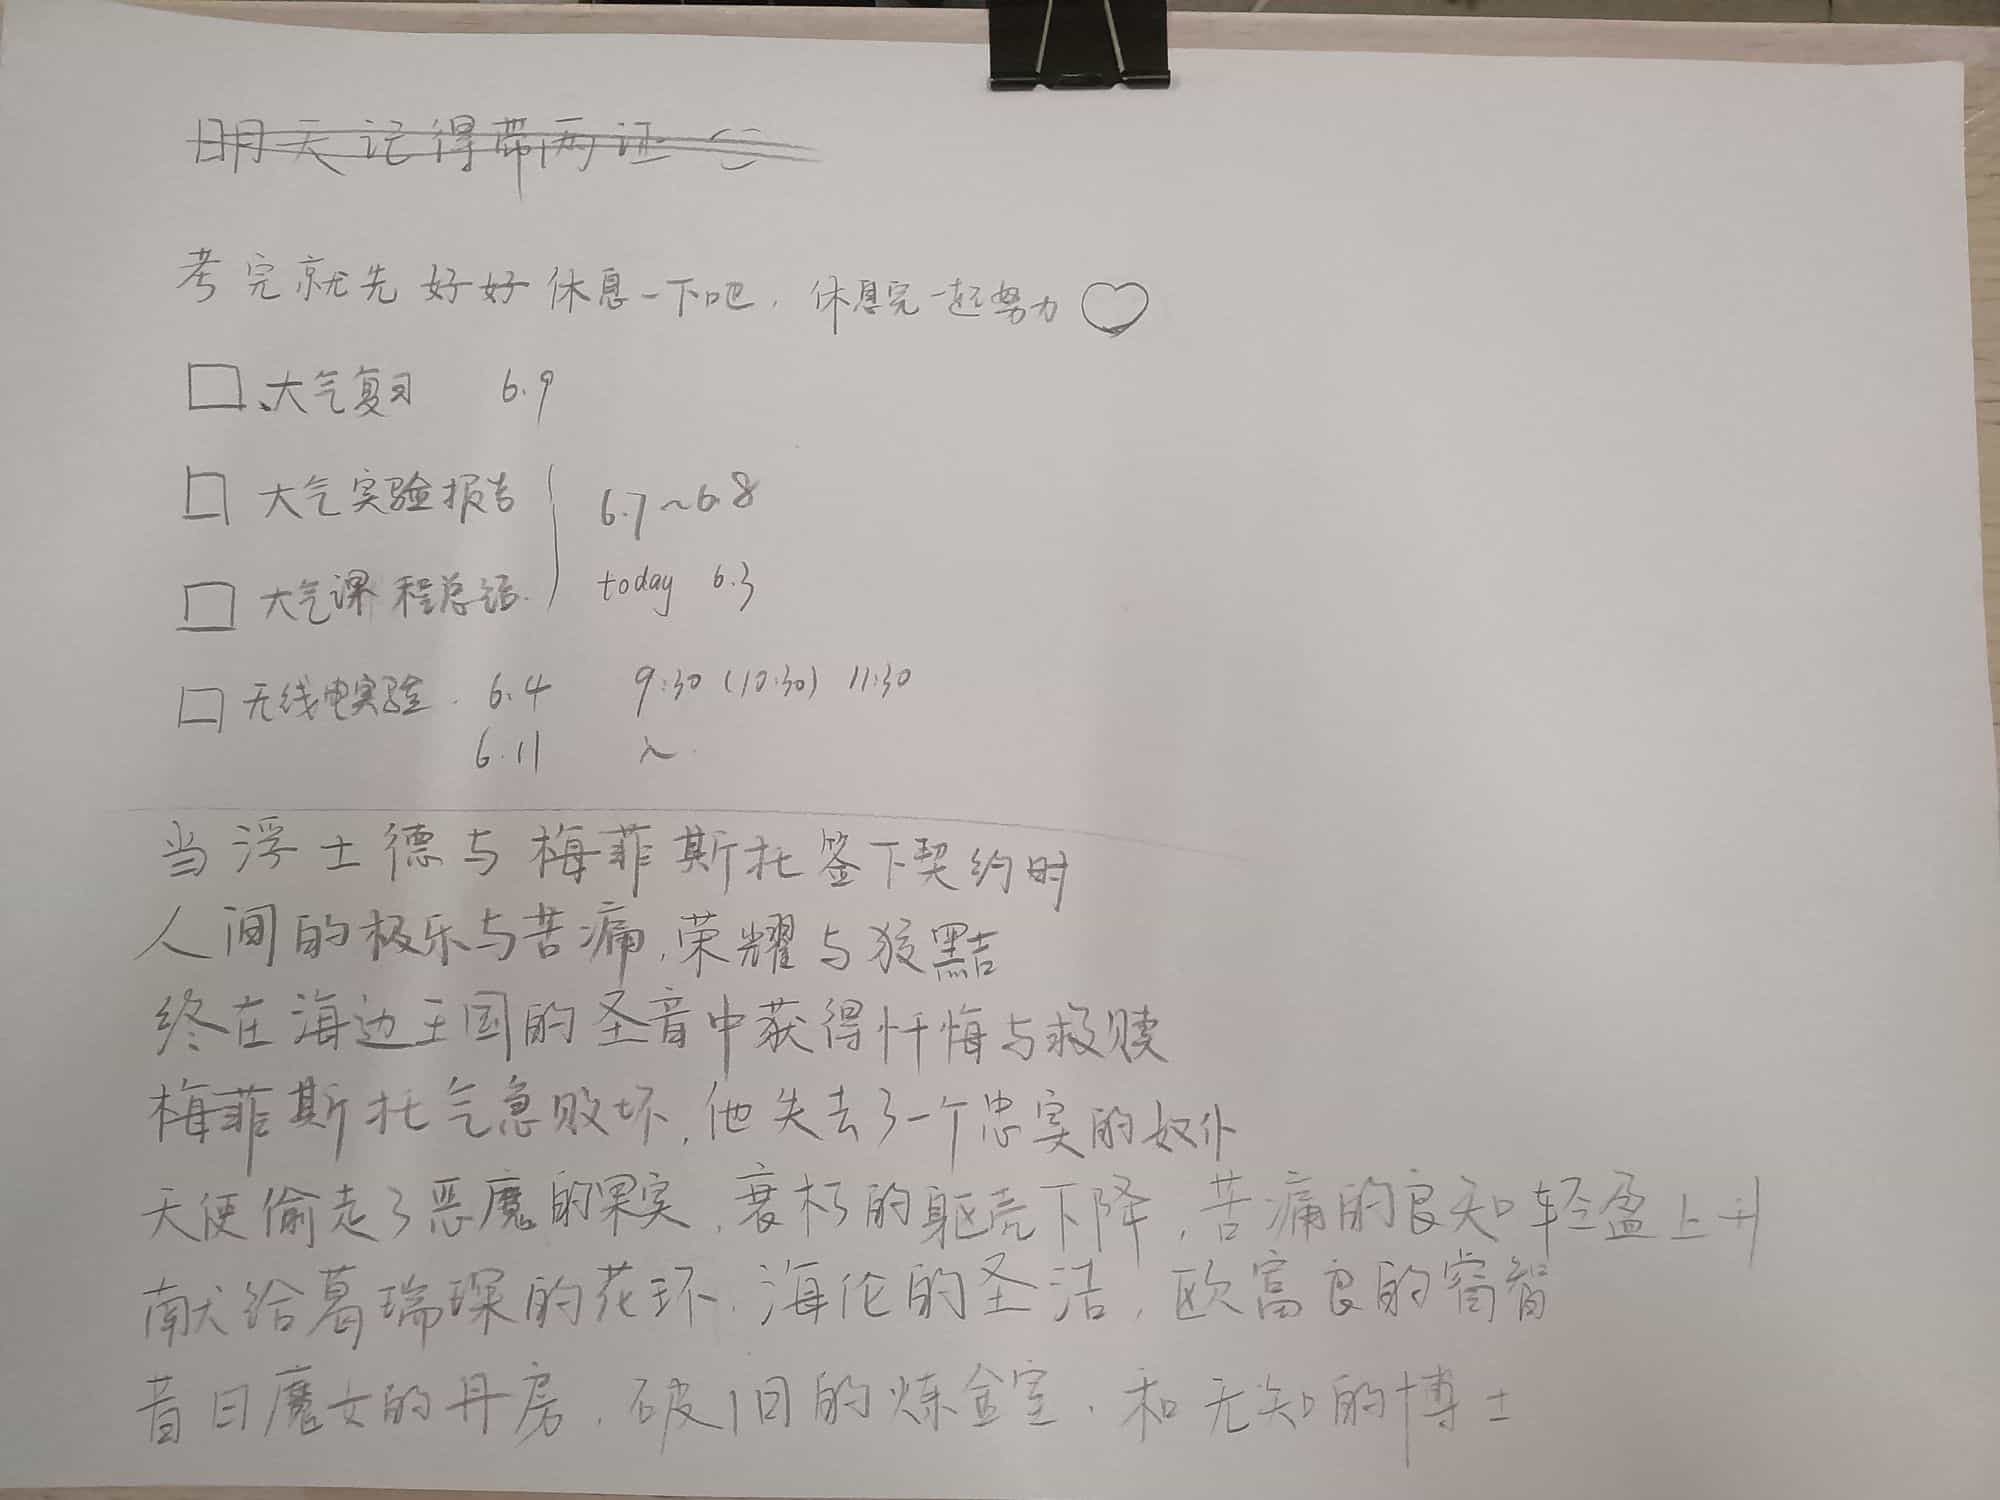 明天记得带两证
考完就先好好休息一下吧，休息完一起努力
大气复习 6.9
大气实验报告 6.7~6.8
大气课程总结. today 6.3
无线电实验. 6.4 9:30 (10:30) 11:30
6.11
当浮士德与梅菲斯托签下契约时
人间的极乐与苦痛,荣耀与狡黠
终在海边王国的圣音中获得忏悔与救赎
梅菲斯托气急败坏,他失去了一个忠实的奴仆
天使偷走了恶魔的果实,衰朽的躯壳下降,苦痛的良知轻盈上升
献给葛瑞琛的花环,海伦的圣洁,欧富良的睿智
昔日魔女的丹房,破旧的炼金室,和无知的博士